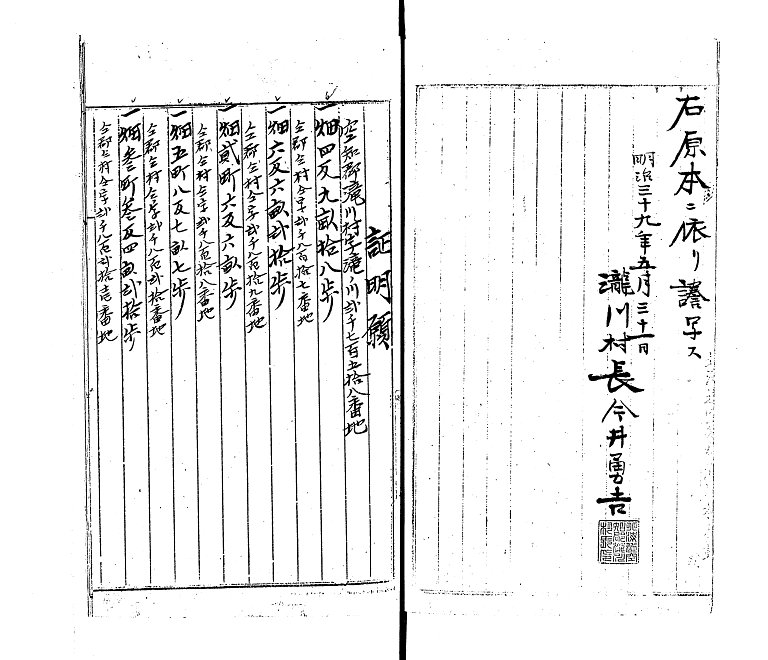 右原本ニ依リ謄写ス
明治三十九年五月三十一日
瀧川村長今井勇吉
証明願
空知郡滝川村字滝ノ川弐千七百五拾八番地
一畑四反九畝拾八歩
仝郡仝村仝字弐千八百拾七番地
一畑六反六畝弐拾歩
仝郡仝村仝字弐千八百拾九番地
一畑貮町六反六畝歩
仝郡仝村仝字弐千八百拾八番地
一畑五町八反七畝七歩
仝郡仝村仝字弐千八百弐拾番地
一畑叁町叁反四畝弐拾歩
仝郡仝村仝字弐千八百弐拾壱番地